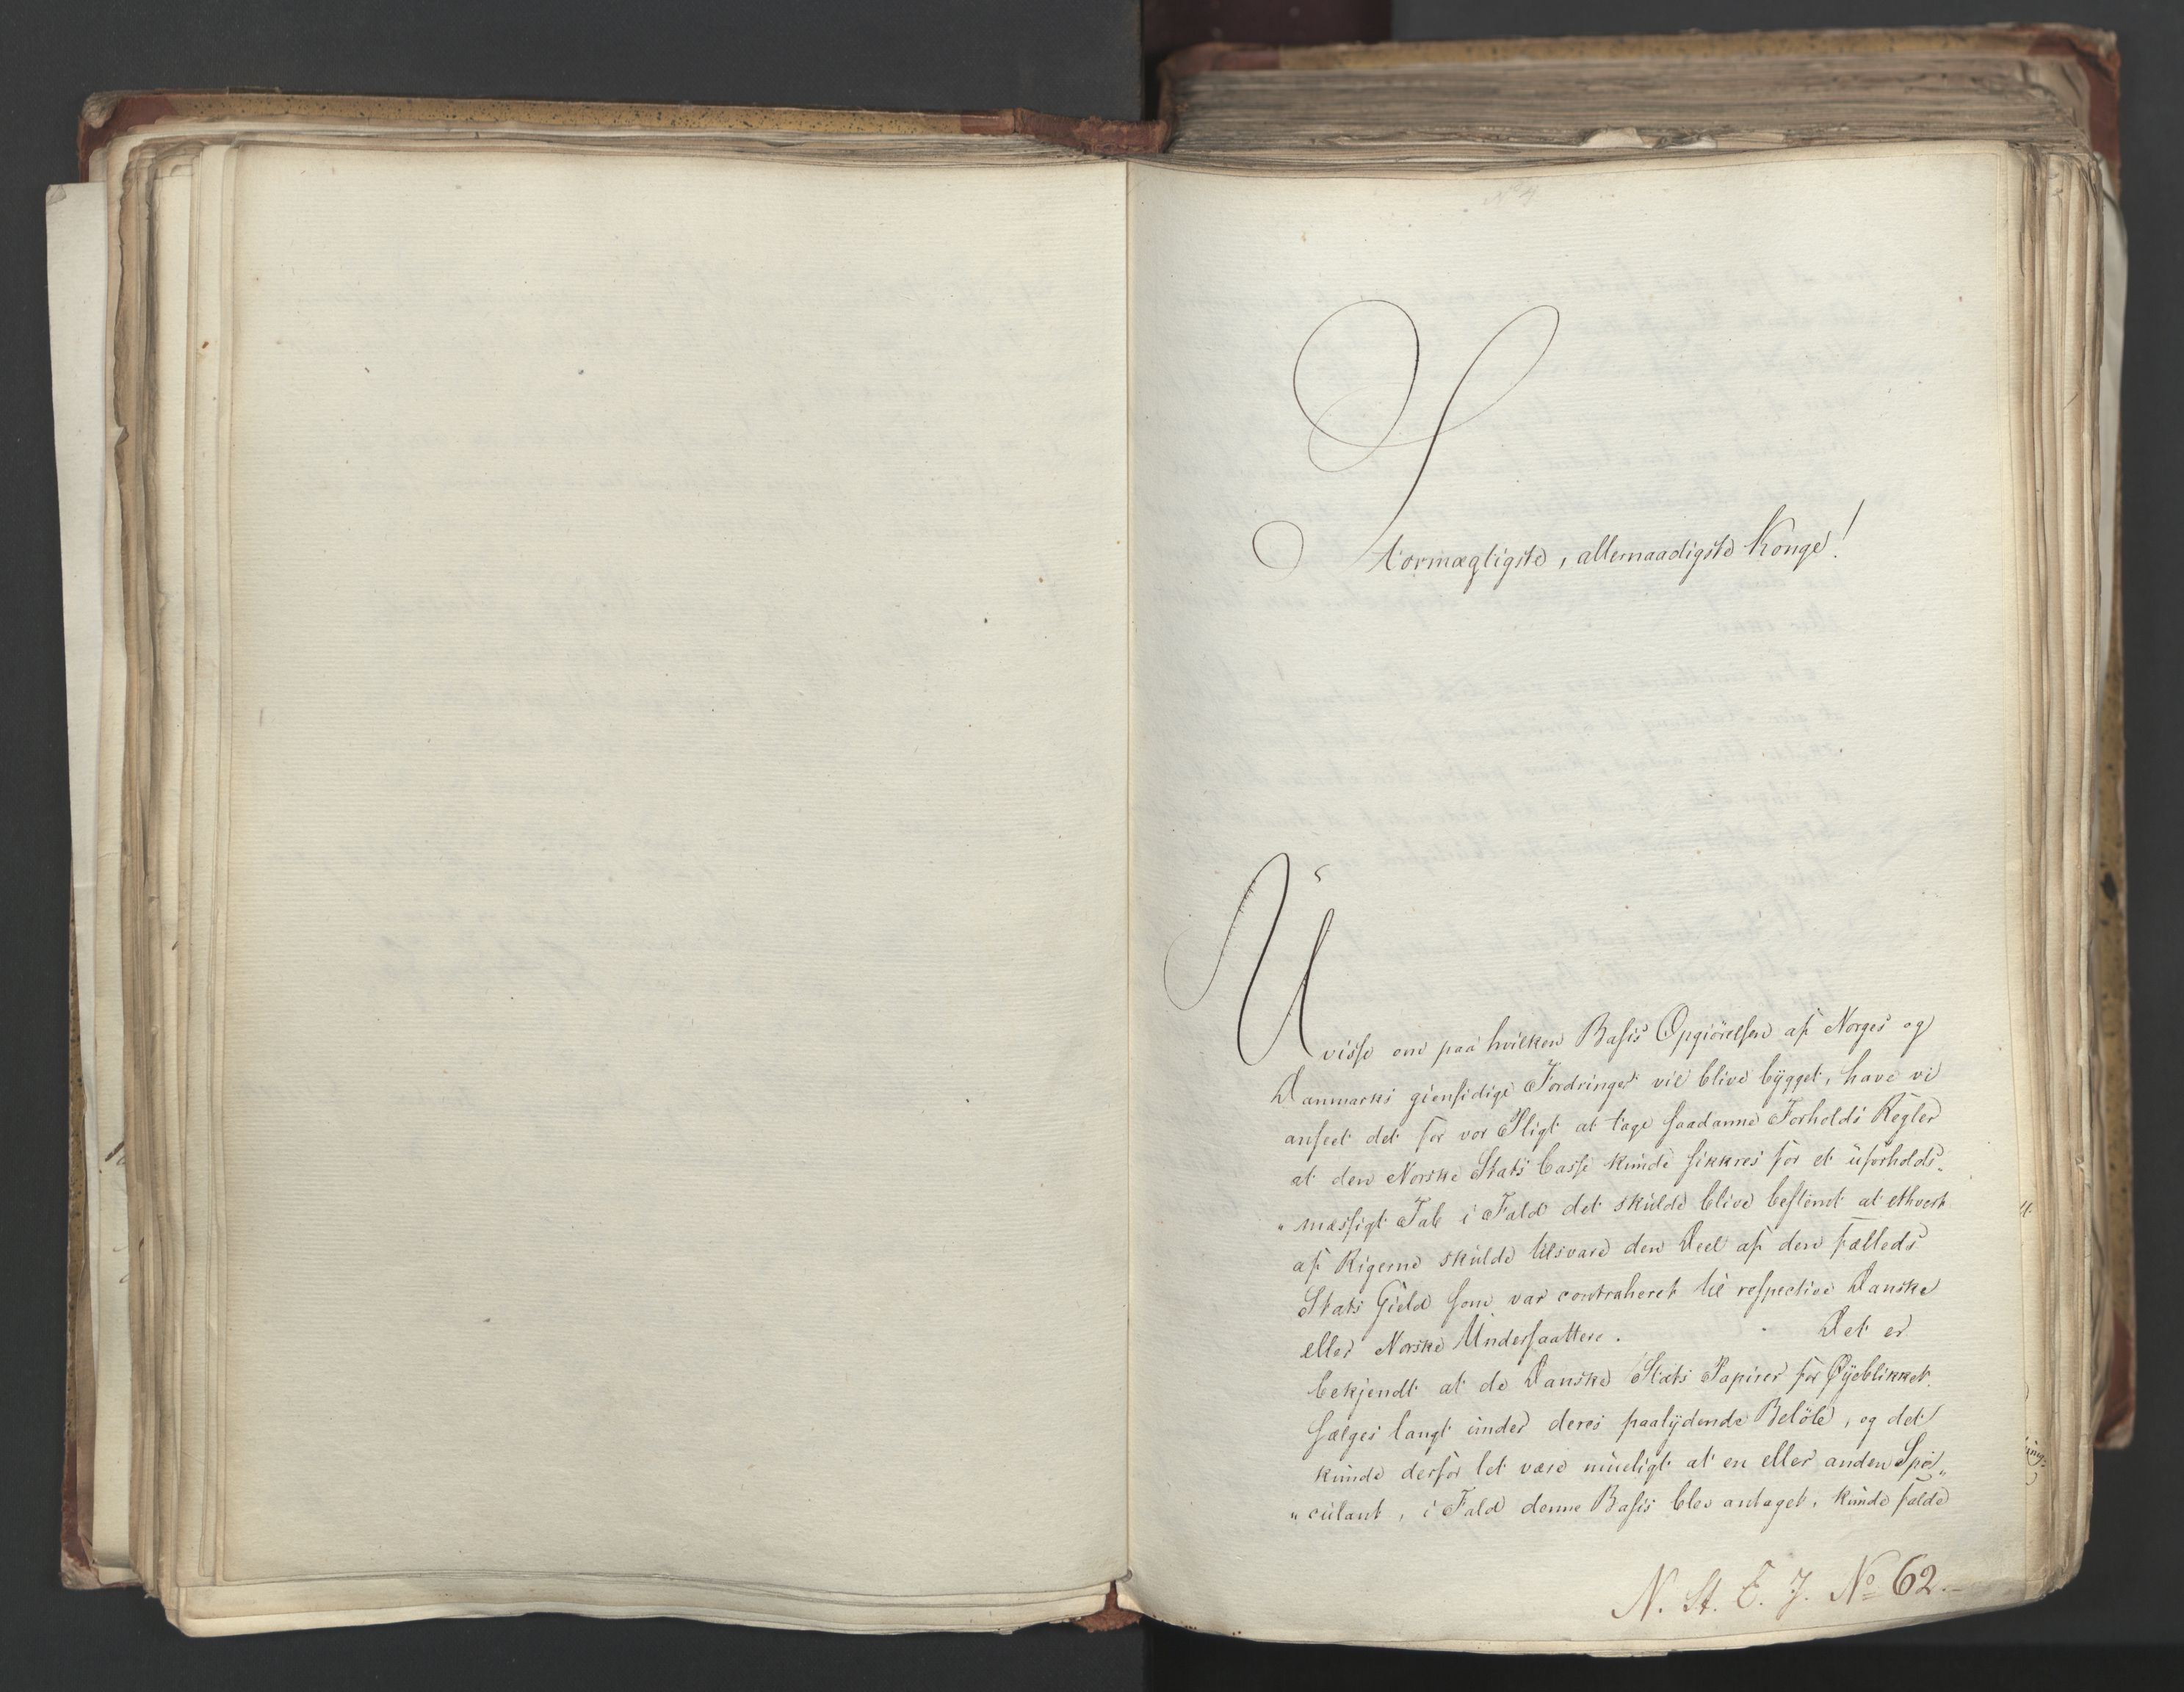 No 4
Stormægtigste, allernaadigste Konge!
Uvisse om paa hvilken Basis Opgiörelsen af Norges og
Danmarks giensidige Fordringer vil blive bygget, have vi
anseet det for vor Pligt at tage saadanne Forholds Regler
at den Norske Stats Casse kunde sikkres for et uforholds„
„mæssigt Tab i Fald det skulde blive bestemt at ethvert
af Rigerne skulde tilsvare den Deel af den fælleds
Stats Gield som var contraheret til respective Danske
eller Norske Undersaatter. Det er
bekjendt at de Danske Stats Papirer for Øyeblikket
sælges langt under deres paalydende Belöb, og det
kunde derfor let være mueligt at en eller anden Spe„
„culant, i Fald denne Basis blev antaget, kunde falde
N. St. E. J. No 62.